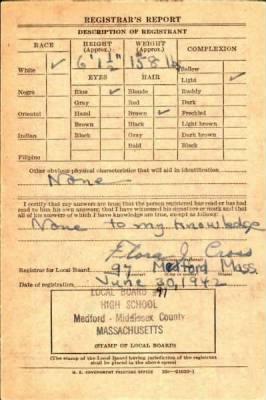 REGISTRAR'S REPORT
DESCRIPTION OF REGISTRANT
RACE HEIGHT (Approx.) WEIGHT (Approx.) COMPLEXION
White ✓ 6' 1½" 158 lb Sallow
EYES HAIR Light ✓
Negro Blue ✓ Blonde Ruddy
Gray Red Dark
Oriental Hazel Brown ✓ Freckled
Brown Black Light brown
Indian Black Gray Dark brown
Bald Black
Filipino
Other obvious physical characteristics that will aid in identification
None
I certify that my answers are true; that the person registered has read or has had
read to him his own answers; that I have witnessed his signature or mark and that
all of his answers of which I have knowledge are true, except as follows:
None to my knowledge
Flora J. Cross
Registrar for Local Board 97 Medford Mass.
Date of registration June 30, 1942
LOCAL BOARD 97
HIGH SCHOOL
Medford - Middlesex County
MASSACHUSETTS
(STAMP OF LOCAL BOARD)
(The stamp of the Local Board having jurisdiction of the registrant
shall be placed in the above space)
U. S. GOVERNMENT PRINTING OFFICE